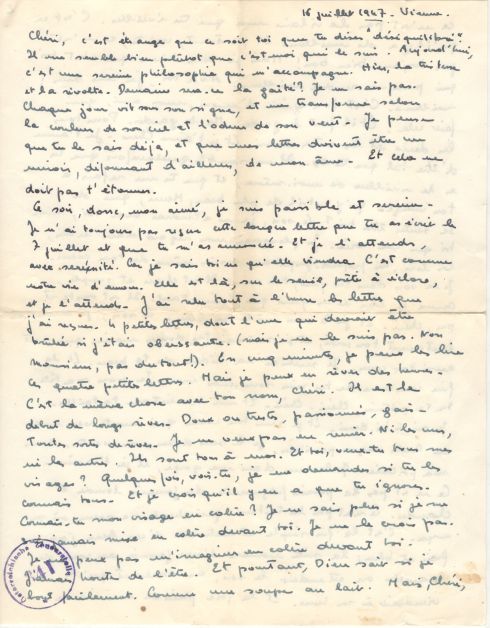 16 juillet 1947. Vienne.
Chéri, c'est étrange que ce soit toi que tu dises "déséquilibré".
Il me semble bien plutôt que c'est moi qui le suis. Aujourd'hui,
c'est une sereine philosophie qui m'accompagne. Hier, la tristesse
et la révolte. Demain sera-ce la gaîté? Je ne sais pas.
Chaque jour vit son signe, et me transforme selon
la couleur de son ciel et l'odeur de son vent. Je pense
que tu le sais déjà, et que mes lettres doivent être un
miroir, d'ailleurs, de mon âme. Et cela ne
doit pas t'étonner.
Ce soir, donc, mon aimé, je suis paisible et sereine.
Je n'ai toujours pas reçue cette longue lettre que tu as écrite le
7 juillet et que tu m'as annoncée. Et je l'attends,
avec sérénité. Car je sais bien qu'elle viendra. C'est comme
notre vie d'amour. Elle est là, sur le seuil, prête à éclore,
et je l'attends. J'ai relu tout à l'heure les lettres que
j'ai reçues. 4 petites lettres, dont l'une qui devrait être
brûlée si j'étais obéissante. (mais je ne le suis pas. Non
Monsieur, pas du tout!). En cinq minutes, je peux les lire
ces quatre petites lettres. Mais je peux en rêver des heures.
C'est la même chose avec ton nom, Chéri. Il est là
début de longs rêves. Doux ou tristes, passionnés, gais.
Toutes sortes de rêves. Je ne veux pas en renier. Ni les uns,
ni les autres. Ils sont tous à moi. Et toi, veux-tu tous mes
visages? Quelques fois, vois-tu, je me demande si tu les
connais tous. Et je crois qu'il y en a que tu ignores.
Connais-tu mon visage en colère? Je ne sais plus si je me
suis jamais mise en colère devant toi. Je ne le crois pas.
Je ne peux pas m'imaginer en colère devant toi.
J'aurais honte de l'être. Et pourtant, Dieu sait si je
bous facilement. Comme une soupe au lait. Mais, Chéri,
Österreichische Zensurstelle